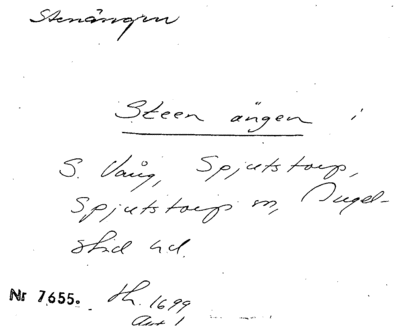 Stenängen
Steen ängen i
S. Vång, Spjutstorp,
Spjutstorp sn, Ingel-
stad hd.
Nr 7655. Lh. 1699
Akt 1